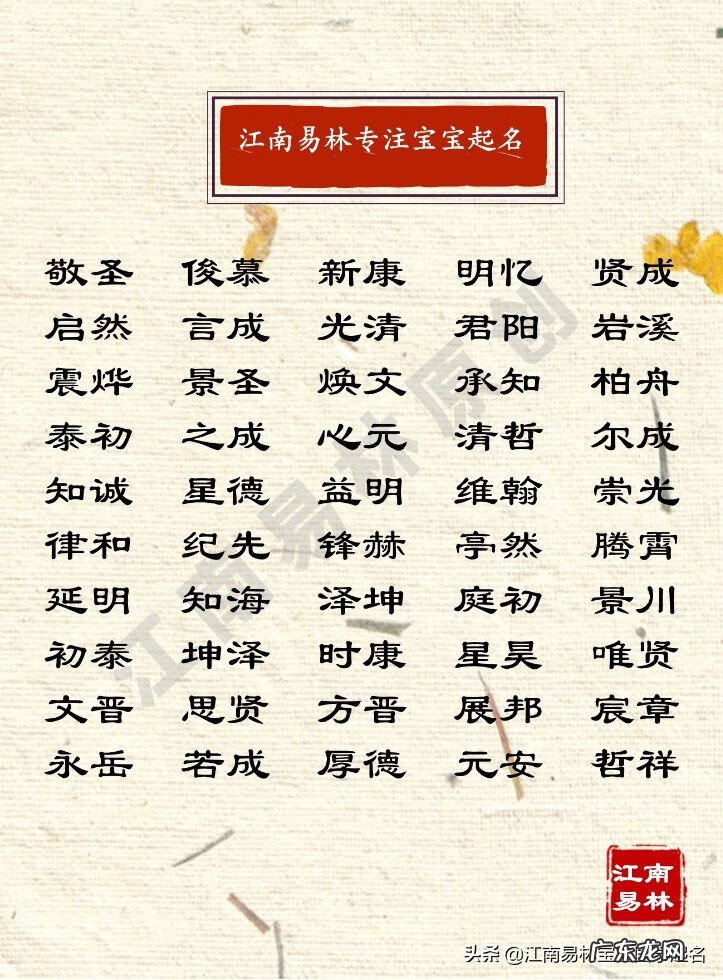 江南易林专注宝宝起名
敬圣 俊慕 新康 明忆 贤成
启然 言成 光清 君阳 岩溪
震烨 景圣 焕文 承知 柏舟
泰初 之成 心元 清哲 尔成
知诚 星德 益明 维翰 崇光
律和 纪先 锋赫 亭然 腾霄
延明 知海 泽坤 庭初 景川
初泰 坤泽 时康 星昊 唯贤
文晋 思贤 方晋 展邦 宸章
永岳 若成 厚德 元安 哲祥
江南易林原创
江南
易林
头条 @江南易林宝宝起名
广东龙网